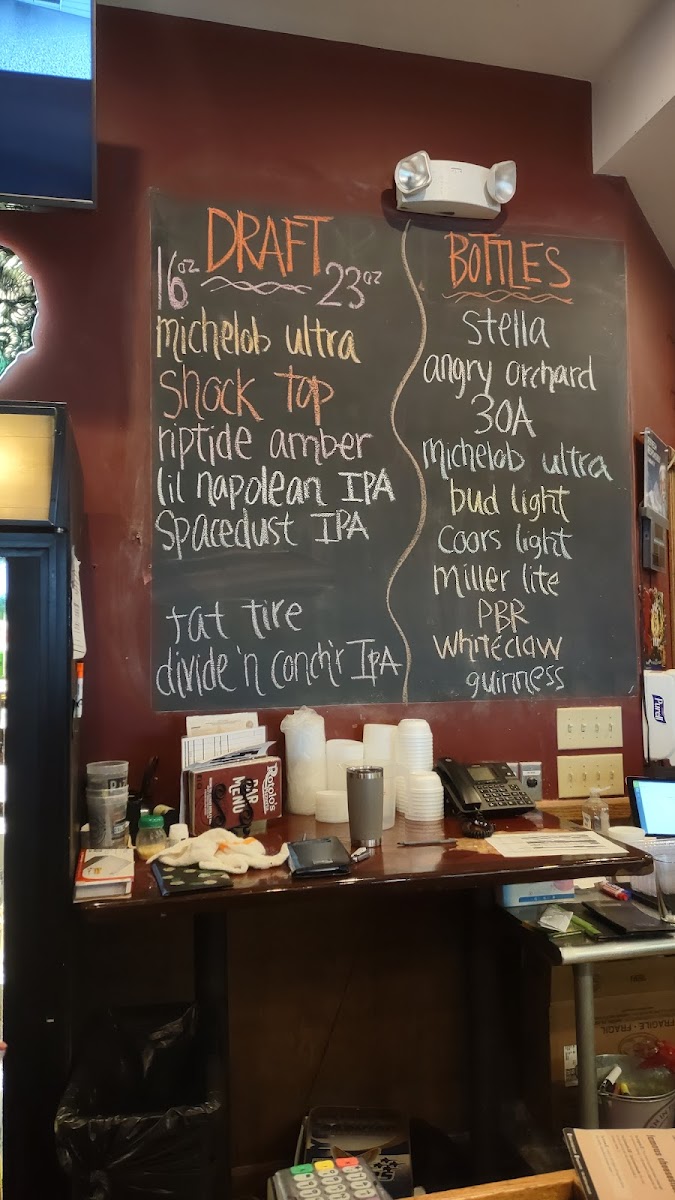 DRAFT
16oz 23oz
michelob ultra
shock top
riptide amber
lil napolean IPA
Spacedust IPA
fat tire
divide 'n conch'r IPA
BOTTLES
Stella
angry orchard
30A
michelob ultra
bud light
coors light
miller lite
PBR
whiteclaw
guinness
Rotolo's
BAR
MENU
Purell
FRAGILE